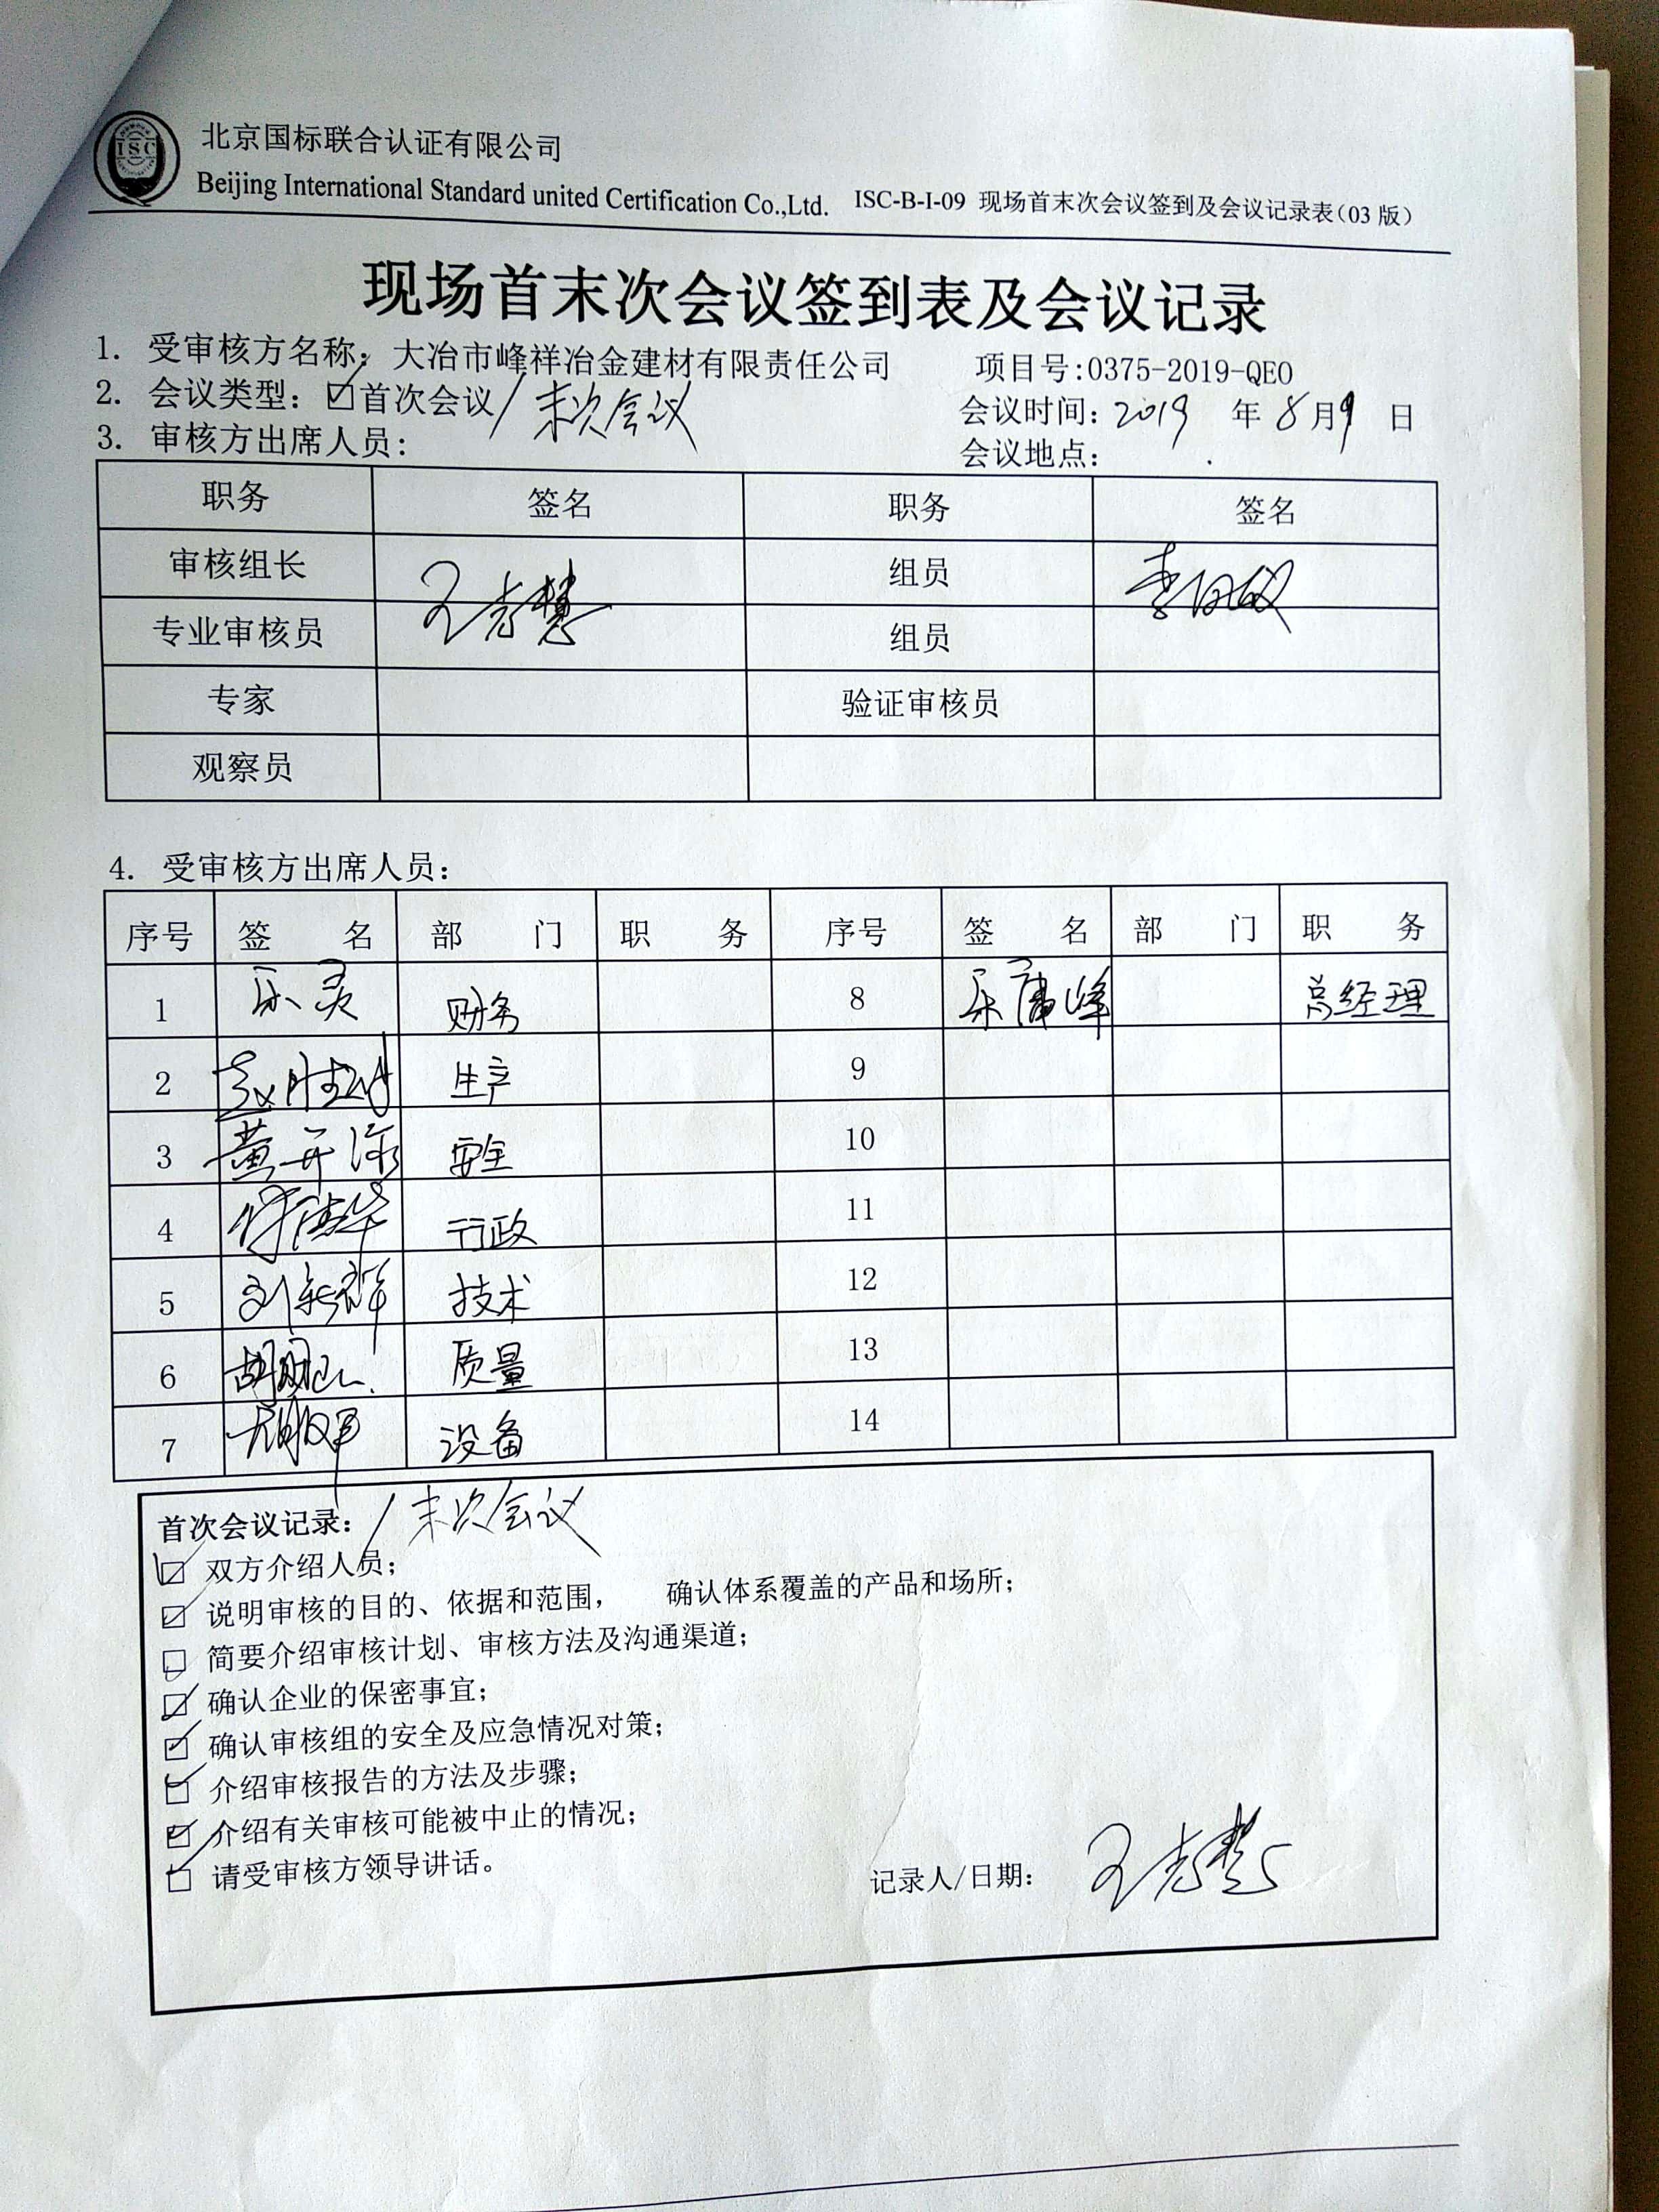 ISC
北京国标联合认证有限公司
Beijing International Standard united Certification Co.,Ltd. ISC-B-I-09 现场首末次会议签到及会议记录表(03 版)
现场首末次会议签到表及会议记录
1. 受审核方名称: 大冶市峰祥冶金建材有限责任公司 项目号:0375-2019-QEO
2. 会议类型: ☑首次会议/末次会议 会议时间: 2019 年 8月9 日
3. 审核方出席人员: 会议地点:
职务 签名 职务 签名
审核组长 组员
专业审核员 组员
专家 验证审核员
观察员
4. 受审核方出席人员:
序号 签 名 部 门 职 务 序号 签 名 部 门 职 务
1 乐灵 财务 8 总经理
2 生产 9
3 安全 10
4 行政 11
5 技术 12
6 质量 13
7 设备 14
首次会议记录: /末次会议
☑ 双方介绍人员;
☑ 说明审核的目的、依据和范围, 确认体系覆盖的产品和场所;
☐ 简要介绍审核计划、审核方法及沟通渠道;
☑ 确认企业的保密事宜;
☑ 确认审核组的安全及应急情况对策;
☑ 介绍审核报告的方法及步骤;
☑ 介绍有关审核可能被中止的情况;
☑ 请受审核方领导讲话。
记录人/日期: